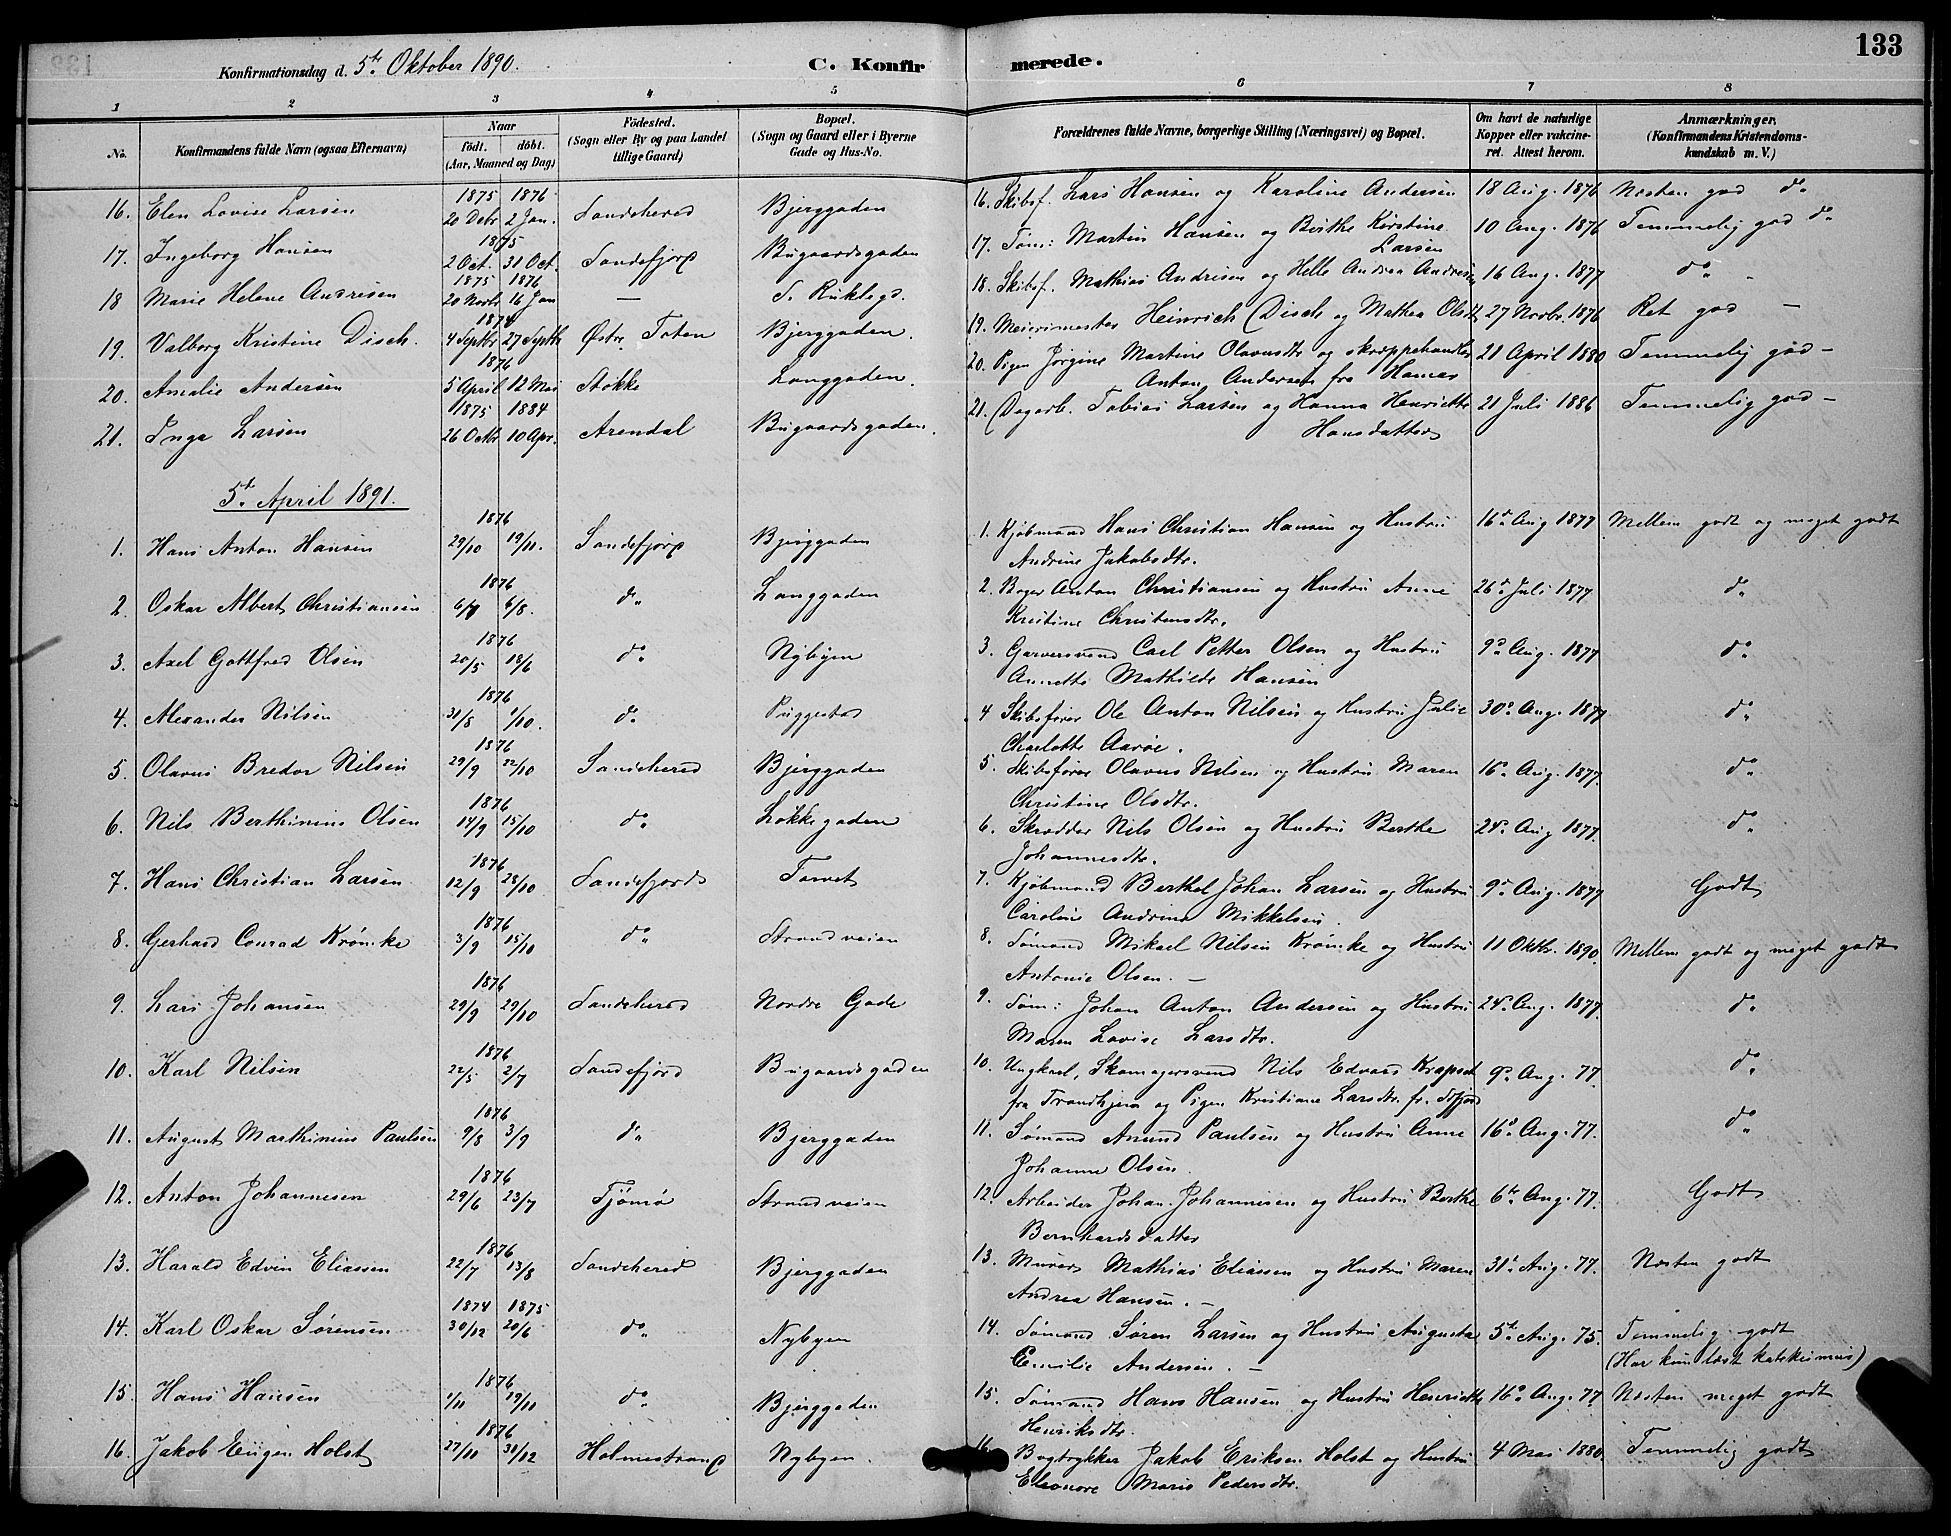 133
Konfirmationsdag d. 5te Oktober 1890.
C. Konfirmerede.
1 2 3 4 5 6 7 8
No. Konfirmandens fulde Navn (ogsaa Efternavn) Naar født. døbt. (Aar, Maaned og Dag) Födested. (Sogn eller By og paa Landet tillige Gaard) Bopæl. (Sogn og Gaard eller i Byerne Gade og Hus-No. Forældrenes fulde Navne, borgerlige Stilling (Næringsvei) og Bopæl. Om havt de naturlige Kopper eller vakcineret. Attest herom. Anmærkninger. (Konfirmandens Kristendomskundskab m. V.)
1875 1876
16. Elen Lovise Larsen 20 Debr 2 Jan. Sandeherred Bjerggaden 16. Skibsf. Lars Hansen og Karoline Andersen 18 Aug. 1876 Næsten god do
1875
17. Ingeborg Hansen 2 Oct. 31 Oct. Sandefjord Bugaardsgaden 17. Søm: Martin Hansen og Berthe Kirstine Larsen 10 Aug. 1876 Temmelig god do
1875 1876
18 Marie Helene Andresen 20 Novbr 16 Jan — S. Ruklegd. 18. Skibsf. Mathias Andresen og Helle Andrea Andresen 16 Aug. 1877 do -
1874
19. Valborg Kristine Disch. 4 Septbr 27 Septbr Østr. Toten Bjerggaden. 19. Meierimester Heinrich Disch og Mathea Olsdtr 27 Novbr. 1876 Ret god —
1876
20. Amalie Andersen 5 April 12 Mai Stokke Langgaden. 20. Pigen Jørgine Martine Olavusdtr og skræppehandler Anton Andersen fra Hamar 21 April 1880 Temmelig god —
1875 1884
21. Inga Larsen 26 Octbr 10 Apr. Arendal Bugaardsgaden. 21. Dagarb. Tobias Larsen og Hanna Henriette Hansdatter 21 Juli 1886 Temmelig god —
5te April 1891.
1876
1. Hans Anton Hansen 29/10 19/11. Sandefjord Bjerggaden 1. Kjøbmand Hans Christian Hansen og Hustru 16de Aug 1877 Mellem godt og meget godt
Andrine Jakobsdtr.
1876
2. Oskar Albert Christiansen 6/7 6/8. do Langgaden 2. Bager Anton Christiansen og Hustru Anne 26de Juli 1877. do
Kristine Christensdtr.
1876
3. Axel Gottfred Olsen 20/5 18/6 do Nybyen 3. Garversvend Carl Petter Olsen og Hustru 9de Aug. 1877 do
Annette Mathilde Hansen
1876
4. Alexander Nilsen 31/8 1/10. do Puggestad 4 Skibsfører Ole Anton Nilsen og Hustru Julie 30de Aug. 1877 do
Charlotte Aarøe.
1876
5. Olavus Bredor Nilsen 29/9 22/10 Sandeherred Bjerggaden 5. Skibsfører Olavus Nilsen og Hustru Maren 16de Aug. 1877. do
Christine Olsdtr.
1876
6. Nils Berthinius Olsen 14/9 15/10 do Løkkegaden 6. Skrædder Nils Olsen og Hustru Berthe 24de Aug 1877. do
Johannesdtr.
1876
7. Hans Christian Larsen 12/9 28/10 Sandefjord Torvet 7. Kjøbmand Berthel Johan Larsen og Hustru 9de Aug. 1877 Godt
Caroline Andrine Mikkelsen.
1876
8. Gerhard Conrad Krømke 3/9 15/10 do Strandveien 8. Sømand Mikael Nilsen Krømke og Hustru 11 Oktbr. 1890. Mellem godt og meget godt
Antonie Olsen. —
1876
9. Lars Johansen 29/9 29/10 Sandeherred Nordre Gade 9. Søm: Johan Anton Andersen og Hustru 24de Aug. 1877. do
Maren Lovise Larsdtr.
1876
10. Karl Nilsen 22/5 2/7 Sandefjord Bugaardsgaden 10. Ungkarl, Skomagersvend Nils Edvard Krapset 9de Aug. 77. do
fra Trondhjem og Pigen Kristiane Larsdtr. fr. Sfjord
1876
11. August Marthinius Paulsen 9/8 3/9 do Bjerggaden 11. Sømand Amund Paulsen og Hustru Anne 16de Aug. 77. do
Johanne Olsen.
1876
12. Anton Johannesen 29/6 23/7 Tjømø Strandveien 12. Arbeider Johan Johannesen og Hustru Berthe 6te Aug. 77. Godt
Bernhardsdatter
1876
13. Harald Edvin Eliassen 22/7 13/8 Sandeherred Bjerggaden 13. Murer Mathias Eliassen og Hustru Maren 31te Aug. 77. Næsten godt
Andrea Hansen. —
1874 1875
14. Karl Oskar Sørensen 30/12 20/6 do Nybyen 14. Sømand Søren Larsen og Hustru Augusta 5te Aug. 75. Temmelig godt
Emilie Andersen. — (Har kun læst katekismus)
1876
15. Hans Hansen 1/10 19/10 do Bjerggaden 15. Sømand Hans Hansen og Hustru Henriette 16de Aug. 77 Næsten meget godt
Henriksdtr.
1876
16. Jakob Eugen Holst 27/10 31/12 Holmestrand Nybyen. 16. Bogtrykker Jakob Eriksen Holst og Hustru 4 Mai 1880. Temmelig godt
Eleonore Marie Pedersdtr.